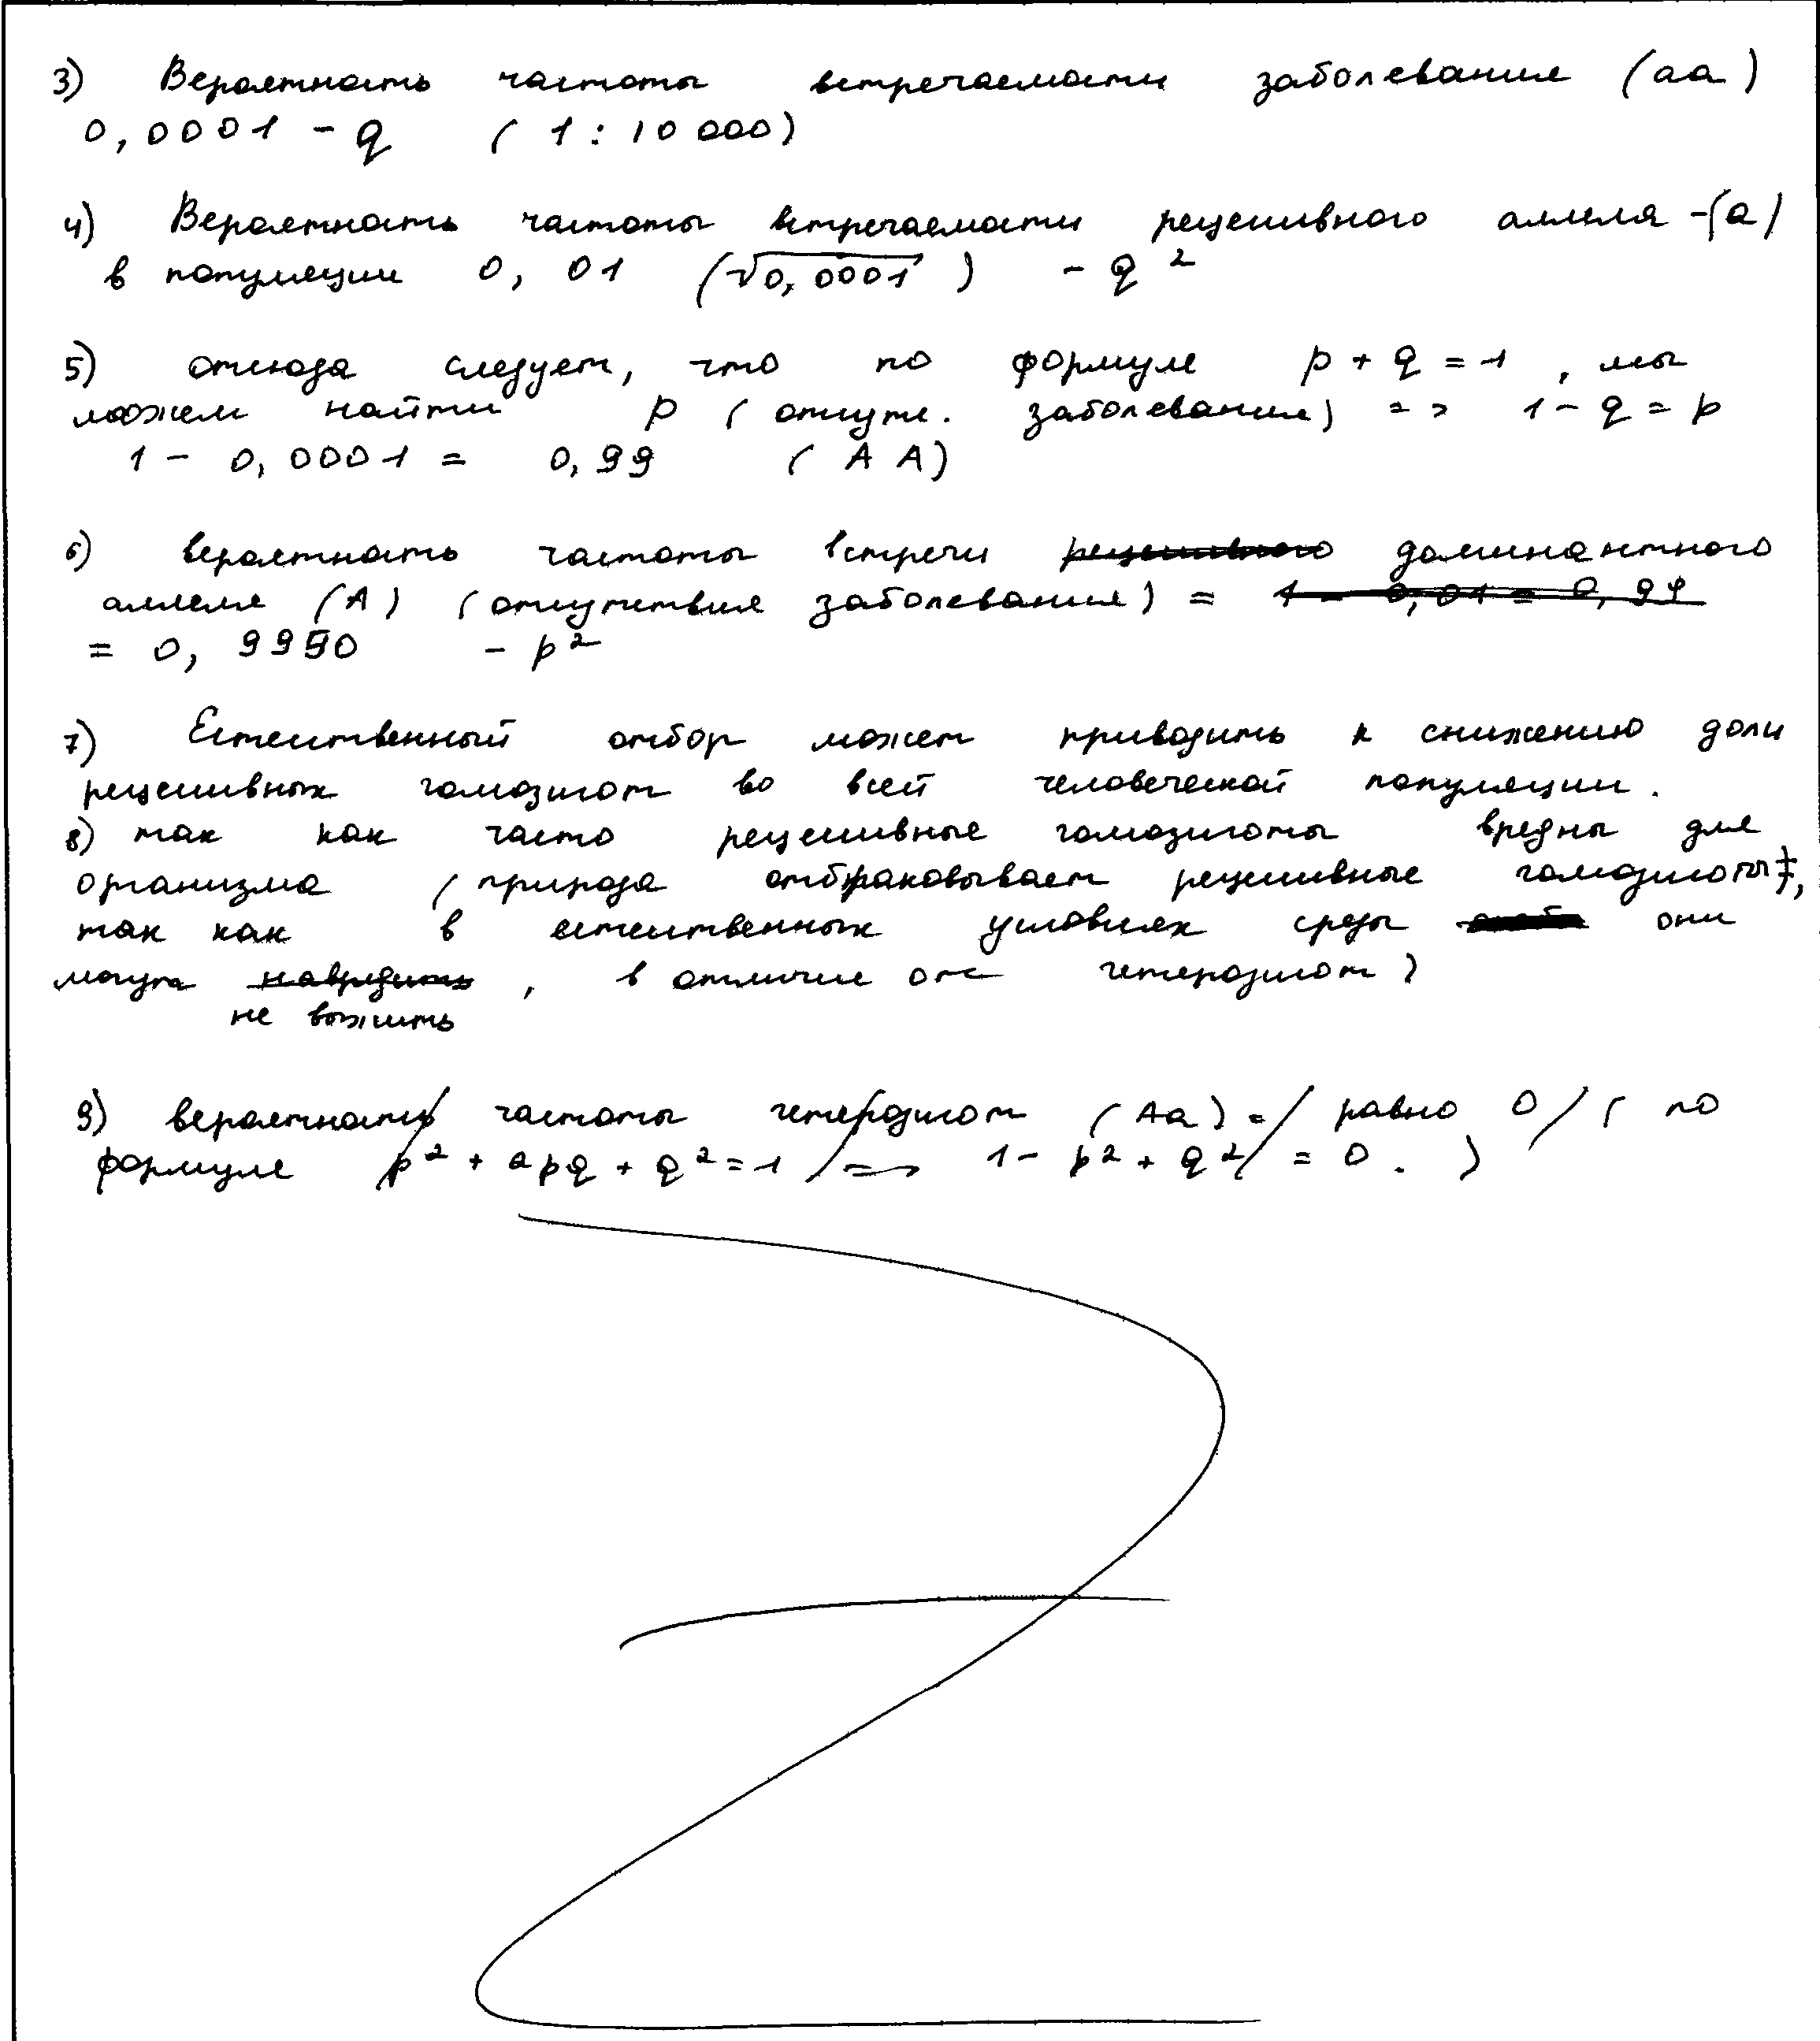 3) Вероятность частоты встречаемости заболевания (аа)
0,0001 - q ( 1 : 10 000)
4) Вероятность частоты встречаемости рецессивного аллеля -(а)
в популяции 0, 01 (√0,0001 ) - q²
5) отсюда следует, что по формуле p + q = 1 , мы
можем найти p ( отсутс. заболевания) => 1 - q = p
1 - 0,0001 = 0,99 ( А А)
6) вероятность частоты встречи рецессивного доминантного
аллеля (А) (отсутствия заболевания) = 1 - 0,01 = 0,99
= 0, 9990 - p²
7) Естественный отбор может приводить к снижению доли
рецессивных гомозигот во всей человеческой популяции.
8) так как часто рецессивные гомозиготы вредны для
организма ( природа отбраковывает рецессивные гомозиготы,
так как в естественных условиях среды они
могут навредить , в отличие от гетерозигот)
не выжить
9) вероятность частоты гетерозигот (Аа) = равно 0 ( по
формуле p² + 2pq + q² = 1 => 1 - p² + q² = 0 . )